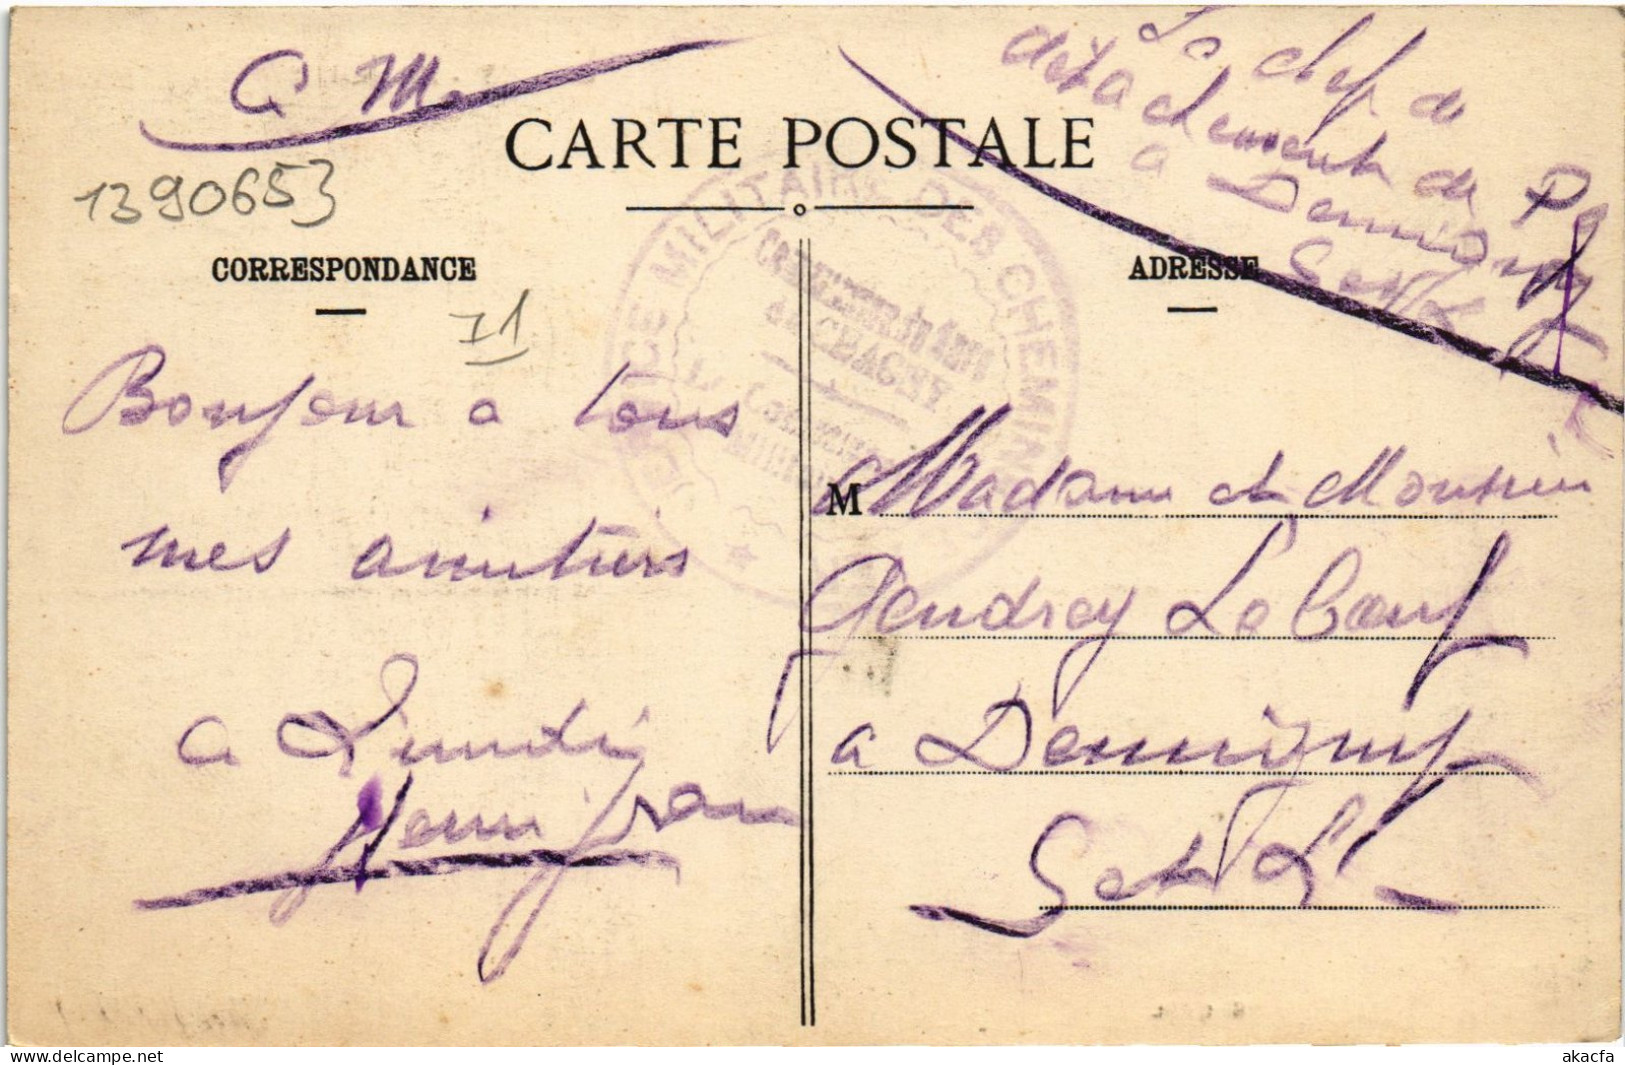 C. M.
Le chef de
détachement de P
à Demigny
S et L
CARTE POSTALE
1390653
CORRESPONDANCE
ADRESSE
71
SERVICE MILITAIRE DES CHEMINS
de CHAGNY
Bonjour a tous
mes amitiers
a Lundi
Henri Jean
M Madame et Monsieur
Gendrey Le Boeuf
a Demigny
S et L
akacfa